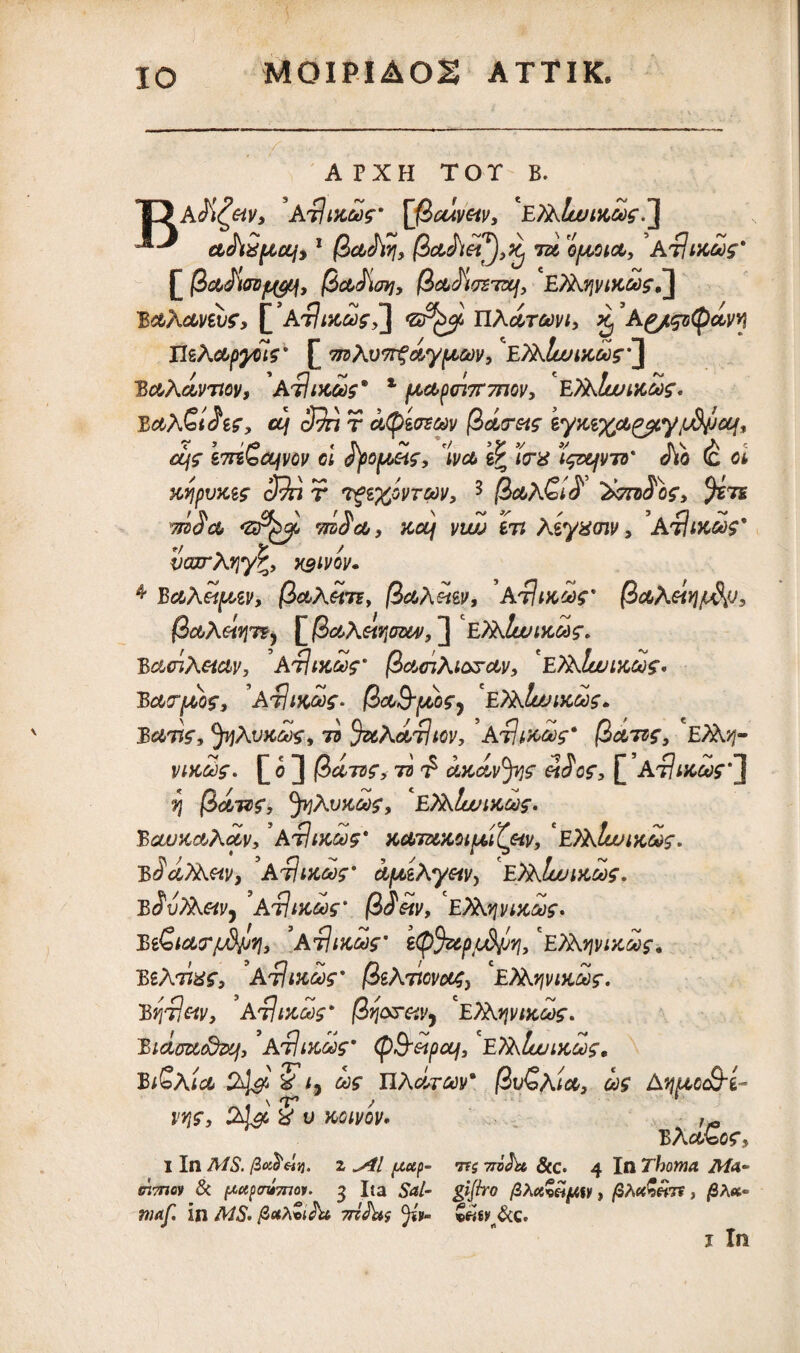 10 ΜΟΙΡΙΔΟΣ ΑΤΤΙΚ.
ΑΡΧΗ ΤΟΥ Β.
ΒΑδίζειν, Ἀττικῶς· [βαίνειν, Ἑλληνικῶς.]
αδιοῦμαι, ¹ βαδιῇ, βαδιεῖται, καὶ τὰ ὅμοια, Ἀττικῶς·
[βαδίσομαι, βαδίσῃ, βαδίσεται, Ἑλληνικῶς.]
Βαλανεὺς, [Ἀττικῶς,] παρὰ Πλάτωνι, καὶ Ἀριστοφάνῃ
Πελαργοῖς· [πολυπράγμων, Ἑλληνικῶς·]
Βαλάντιον, Ἀττικῶς· ² μαρσίππιον, Ἑλληνικῶς.
Βαλβίδες, αἱ ἐπὶ τ ἀφέσεων βάσεις ἐγκεχαραγμέναι,
αἷς ἐπέβαινον οἱ δρομεῖς, ἵνα ἐξ ἴσου ἵσταιντο· διὸ καὶ οἱ
κήρυκες ἐπὶ τ τρεχόντων, ³ βαλβίδ' ἀποδὸς, θέτε
πόδα παρὰ πόδα, καὶ νῦν ἔτι λέγουσιν, Ἀττικῶς·
ὕσπληγξ, κοινόν.
⁴ Βαλεῖμεν, βαλεῖτε, βαλεῖεν, Ἀττικῶς· βαλείημεν,
βαλείητε, [βαλείησαν,] Ἑλληνικῶς.
Βασίλειαν, Ἀττικῶς· βασίλισσαν, Ἑλληνικῶς.
Βασμὸς, Ἀττικῶς. βαθμὸς, Ἑλληνικῶς.
Βατὶς, θηλυκῶς, τὸ θαλάττιον, Ἀττικῶς· βάτος, Ἑλλη-
νικῶς. [ὁ] βάτος, τὸ τῆς ἀκάνθης εἶδος, [Ἀττικῶς·]
ἡ βάτος, θηλυκῶς, Ἑλληνικῶς.
Βαυκαλᾶν, Ἀττικῶς· κατακοιμίζειν, Ἑλληνικῶς.
Βδάλλειν, Ἀττικῶς· ἀμέλγειν, Ἑλληνικῶς.
Βδύλλειν, Ἀττικῶς· βδεῖν, Ἑλληνικῶς.
Βεβιασμένη, Ἀττικῶς· ἐφθαρμένη, Ἑλληνικῶς.
Βελτίους, Ἀττικῶς· βελτίονας, Ἑλληνικῶς.
Βήττειν, Ἀττικῶς· βήσσειν, Ἑλληνικῶς.
Βιάσασθαι, Ἀττικῶς· φθεῖραι, Ἑλληνικῶς.
Βιβλία διὰ τοῦ ι, ὡς Πλάτων· βυβλία, ὡς Δημοσθέ-
νης, διὰ τοῦ υ κοινόν.
Βλάβος,
1 In MS. βαδείη. 2 Al μαρ-
σίπιον & μαρσύπιον. 3 Ita Sal-
maſ. in MS. βαλβίδα πόδας θέν-
τες πόδα &c. 4 In Thoma Ma-
giſtro βλαβεῖμεν, βλαβεῖτε, βλα-
βεῖεν &c.
1 In